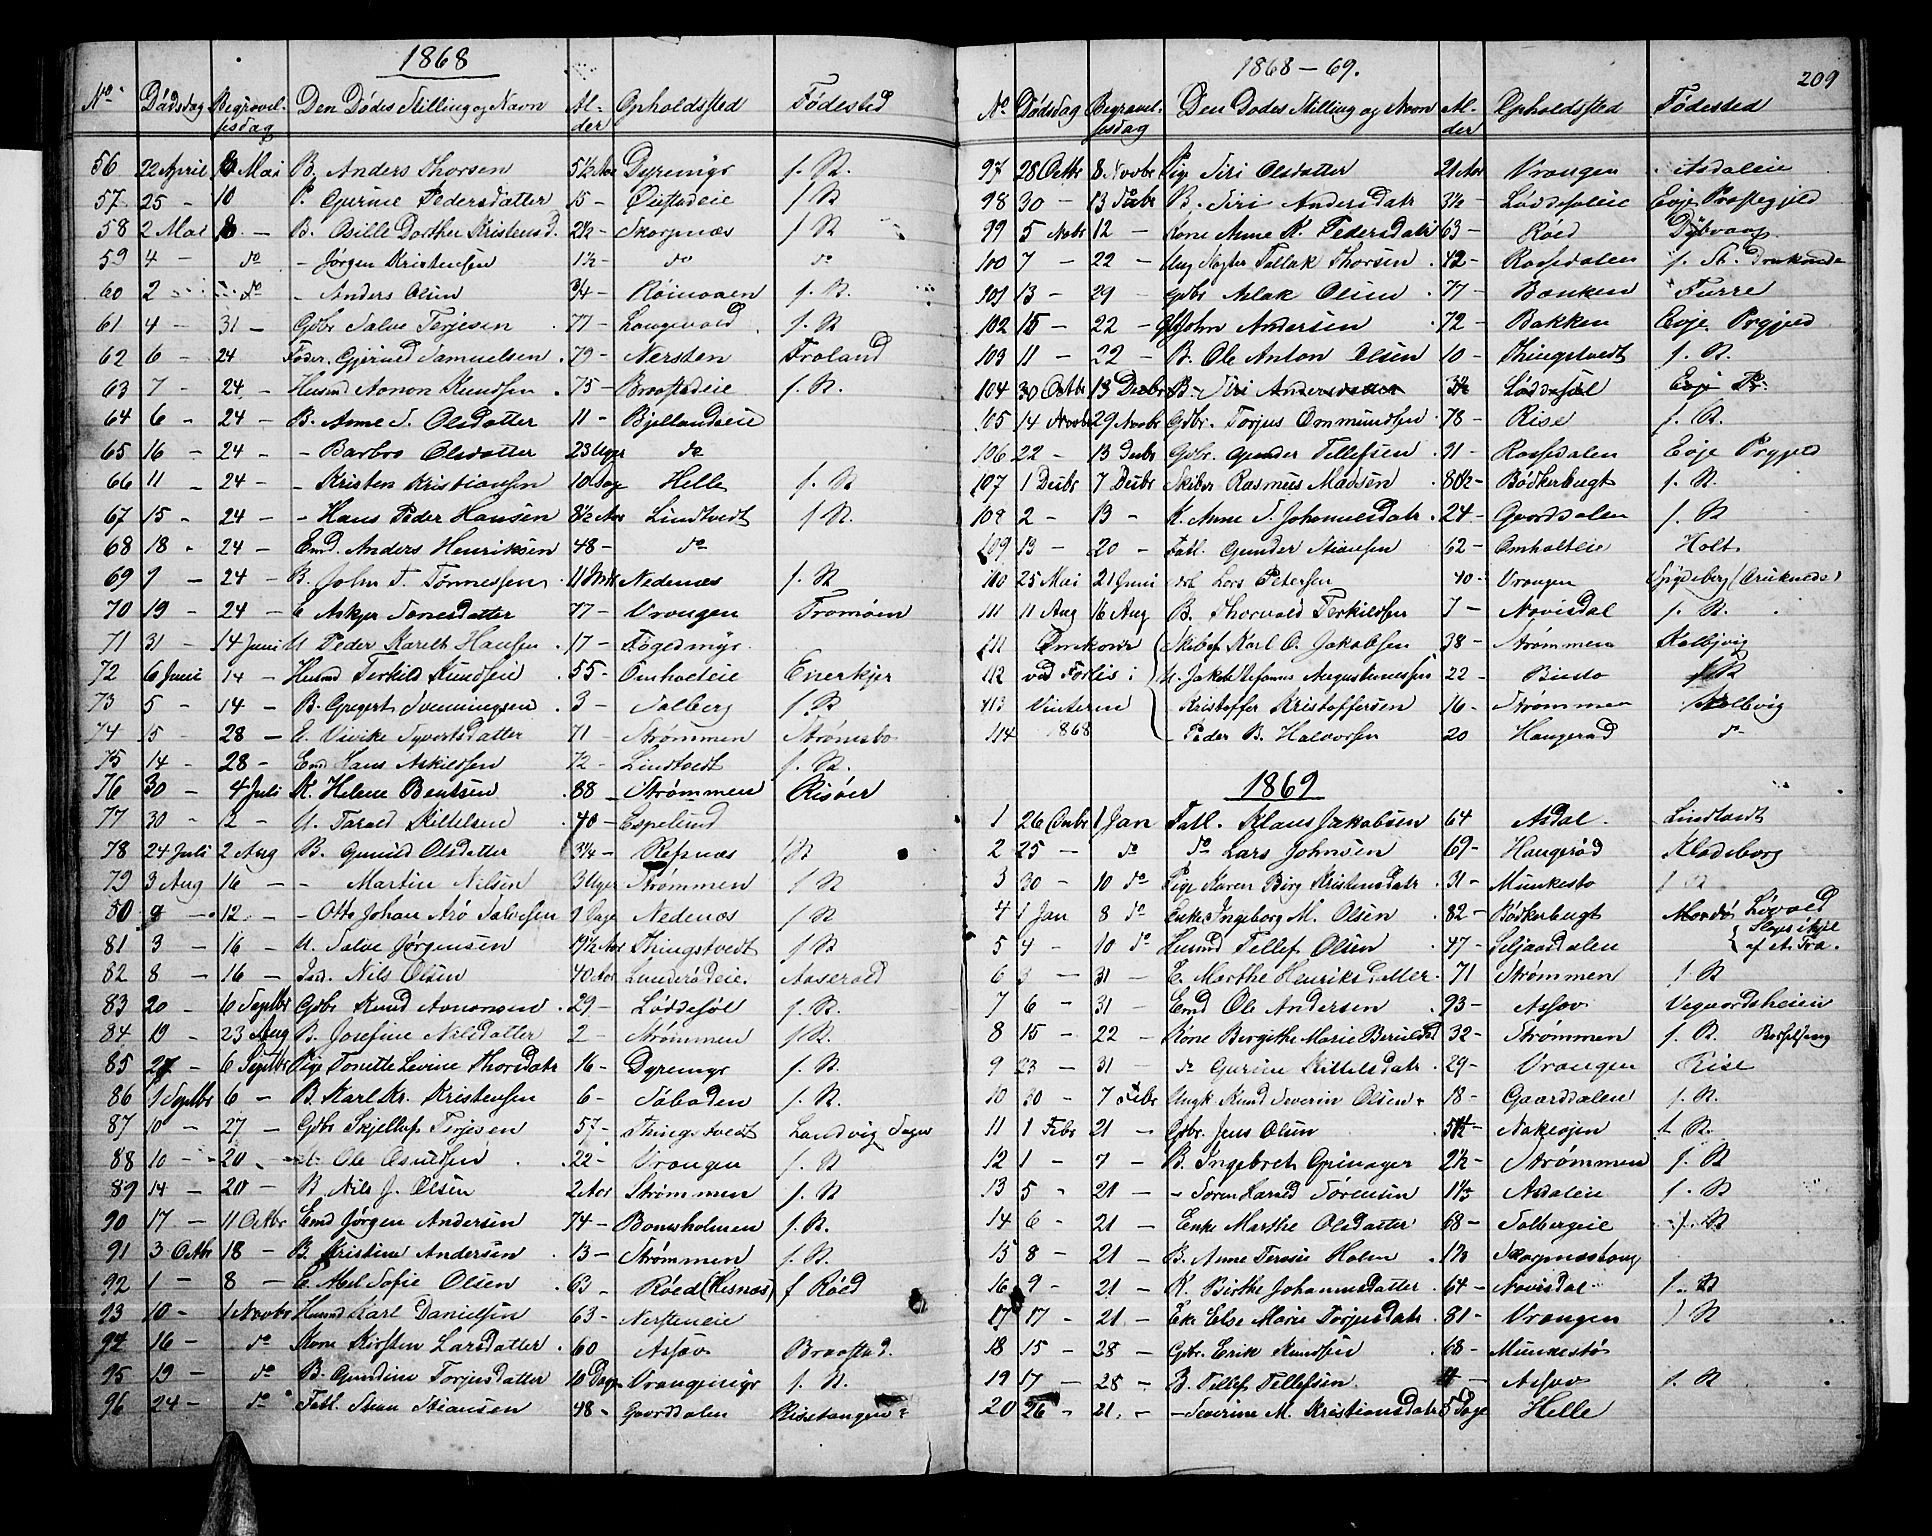 1868
No. Dödsdag Begravelsesdag Den Dödes Stilling og Navn Alder Opholdsted Födested
56 22 April 8 Mai B. Anders Thorsen 5½ Aar Dyremyr f. St.
57 25 - 10 P. Gurine Pedersdatter 15 - Öiestadeie f St
58 2 Mai 8 - B. Bille Dorthea Kristensd. 2½ - Skarpnæs f St
59 4 - do - Jørgen Kristensen 1½ - do do
60 2 do - Anders Olsen ¾ - f. St.
61 4 - 31 - Gdbr Salve Terjesen 77 - Langevold f. St
62 6 - 24 Föder. Gjerued Samuelsen 79 - Nersten Froland
63 7 - 24 - Husmd Aanon Knudsen 75 - Braastadeie f. St.
64 6 - 24 - B. Anne S. Olsdatter 11 - Bjellandseie
65 16 - 24 - - Barbro Olsdatter 23 Uger do
66 11 - 24 - - Kristen Kristiansen 10 Dag Helle f. St.
67 15 - 24 - - Hans Peder Hansen 8½ Aar Lindtvedt f St.
68 18 - 24 - Emd. Anders Henriksen 48 - do
69 9 - 24 - B. John T. Tønnessen 11 Mdr Nedenæs f. St
70 19 - 24 - E Askjer Tonesdatter 77 - Vrangen Tromøen
71 31 - 14 Juni U Peder Kareth Hansen 17 - Fogedmyr
72 6 Juni 14 - Husmd Terkild Knudsen 55 - Omholteie Enerkjer
73 5 - 14 - B. Gregert Svenningsen 3 - Solberg f St
74 15 - 28 - E. Vivike Syvertsdatter 71 - Strømmen Strömsbo
75 14 - 28 - Emd Hans Askildsen 72 - Lindtvedt f. St.
76 30 - 4 Juli K. Helene Bentsen 88 - Strømmen Risöer
77 30 - 12 - U. Tarald Kittelsen 40 - Espelund
78 24 Juli 2 Aug B. Gunild Olsdatter 3¼ - Refsnæs St
79 3 Aug 16 - - Martin Nilsen 3 Uger Strømmen f St
80 9 - 12 - - Otto Johan Arö Salvesen 9 Dage Nedenæs f St
81 3 - 16 - U. Salve Jørgensen 19½ Aar Thingstvedt f St
82 8 - 16 - Ind. Nils Olsen 40 Aar Lunderödeie. Aaserald
83 20 - 6 Septbr Gdbr Knud Aanonsen 29 - Løddesøl f. St.
84 19 - 23 Aug B. Josefine Nilsdatter 2 - Strømmen f St.
85 27 - 6 Septbr Pige Tonette Levine Thorsdatr 16 - Dyremyr f. St.
86 1 Septbr 6 - B. Karl Kr. Kristensen 6 - Saboden f. St.
87 10 - 27 - Gdbr Skjellof Terjesen 57 - Thingstvedt Landvig Sogn
88 10 - 20 - Ole Osuldsen 22 - Vrangen f. St
89 14 - 20 - B Nils J. Olsen 2 Aar Strømmen f. St
90 17 - 11 Octbr Emd Jørgen Andersen 74 - Bomsholmen f. St.
91 3 Octbr 18 - B. Kristine Andersen 13 - Strømmen f. St.
92 1 - 8 - E. Mel Sofie Olsen 63 - Røed (Resnæs) f Röed
93 10 - 1 Novbr Husmd Karl Danielsen 63 - Nersteneie
94 16 - do Kone Kirsten Larsdatter 60 Assæv Braastad
95 19 - do B. Gundine Torjusdatter 10 Dage Vrangemyr f. St.
96 24 - do Fatl. Stian Stiansen 48 - Gaarddalen Risetangen
1868-69. 209
No Dödsdag Begravelsesdag Den Dödes Stilling og Navn Alder Opholdsted Födested
97 28 Octbr 8 Novbr Pige Siri Olsdatter 21 Aar Vrangen Asdaleie
98 30 - 13 Debr B. Siri Andersdatr 3½ - Løddesøleie Evje Præstegjeld
99 5 Nobr 12 - Kone Anne K. Pedersdatr 63 - Röed Dybvaag
100 7 - 22 - Ung Slagter Tallak Thorsen 42 - Rossedalen f. St.
101 13 - 29 - Gdbr Aslak Olsen 77 - Banken Furre
102 15 - 22 - John Andersen 72 - Bakken Evje Prgjeld
103 11 - 22 - B. Ole Anton Olsen 10 - Thingstvedt f. St.
104 30 Octbr 13 Debr B. Siri Andersdatter 3½ Løddesøl Evje Pr.
105 14 Novbr 29 Novbr Gdbr. Torjus Ommundsen 78 - Rise f. St.
106 22 - 13 Debr Gdbr. Gunder Tellefsen 91 - Rossedalen Evje Prgjeld
107 1 Debr 7 Debr Skiber Rasmus Madsen 80½ - Bødkerbugt f. St.
108 2 - 13 - K. Anne S. Johannesdatr 24 - Gaarddalen f. St
109 13 - 20 - Fatl. Gunder Stiansen 62 - Omholteie Holt
110 25 Mai 21 Juni Lars Petersen 40 - Vrangen
111 11 Aug 16 Aug B. Thorvald Terkildsen 7 - Novisdal f. St.
111 Omkom Skibsf. Karl O. Jakobsen 38 - Strømmen Kalvjvig
112 ved Forlis i U. Jakob Stefanus Augustinussen 22 - Biedo f St
113 Vinteren Kristoffer Kristoffersen 16 - Strømmen Kolbvig
114 1868 - Peder B. Halvorsen 20 Haugerød do
1869
1 26 Debr 1 Jan Fatl. Klaus Jakobsen 64 Asdal. Lindtvedt
2 25 - do do Lars Johnsen 69 - Haugerød Kladeborg
3 30 - 10 do Pige Karen Birg. Kristensdatr 31 - Munkesto f St
4 1 Jan 8 do Enke Ingeborg M. Olsen 82 - Bødkerbugt Mordö Løvold
5 4 - 10 do Husmd Tellef Olsen 47 - Seljaasdalen
6 3 - 31 - E. Marthe Henriksdatter 71 Strømmen f St
7 6 - 31 - Emd Ole Andersen 93 - Assæv Vegaardsheien
8 15 - 22 - Kone Bergithe Marie Berntsd 32 - Strømmen f. St.
9 23 - 31 - do Gurine Kittelsdatr 29 - Vrangen Rise
10 30 - 7 Febr Ungk Knud Severin Olsen 18 - Gaarddalen f. St.
11 1 Febr 21 - Gdbr. Jens Olsen 54½ - Nakesjen f. St.
12 1 - 7 - B. Ingebret Grinager 2½ - Strømmen f. St
13 5 - 21 - - Søren Larned Sørensen 1⅓ - Asdaleie f. St
14 6 - 21 - Enke Marthe Olsdatter 68 - Solbergeie f. St
15 8 - 21 - B. Anne Terese Holen Skarpnæshaug
16 9 - 21 - K. Birthe Johannesdatter 64 - Novisdal f. St
17 17 - 21 - Eke Else Marie Torjusdatr 81 - Vrangen f St
18 15 - 28 - Gdbr. Erik Knudsen 68 - Munkestø
19 17 - 28 - B. Tellef Tellefsen Assæv f. St
20 26 - 21 - - Severine M. Kristiansdatr 5 Dage Helle